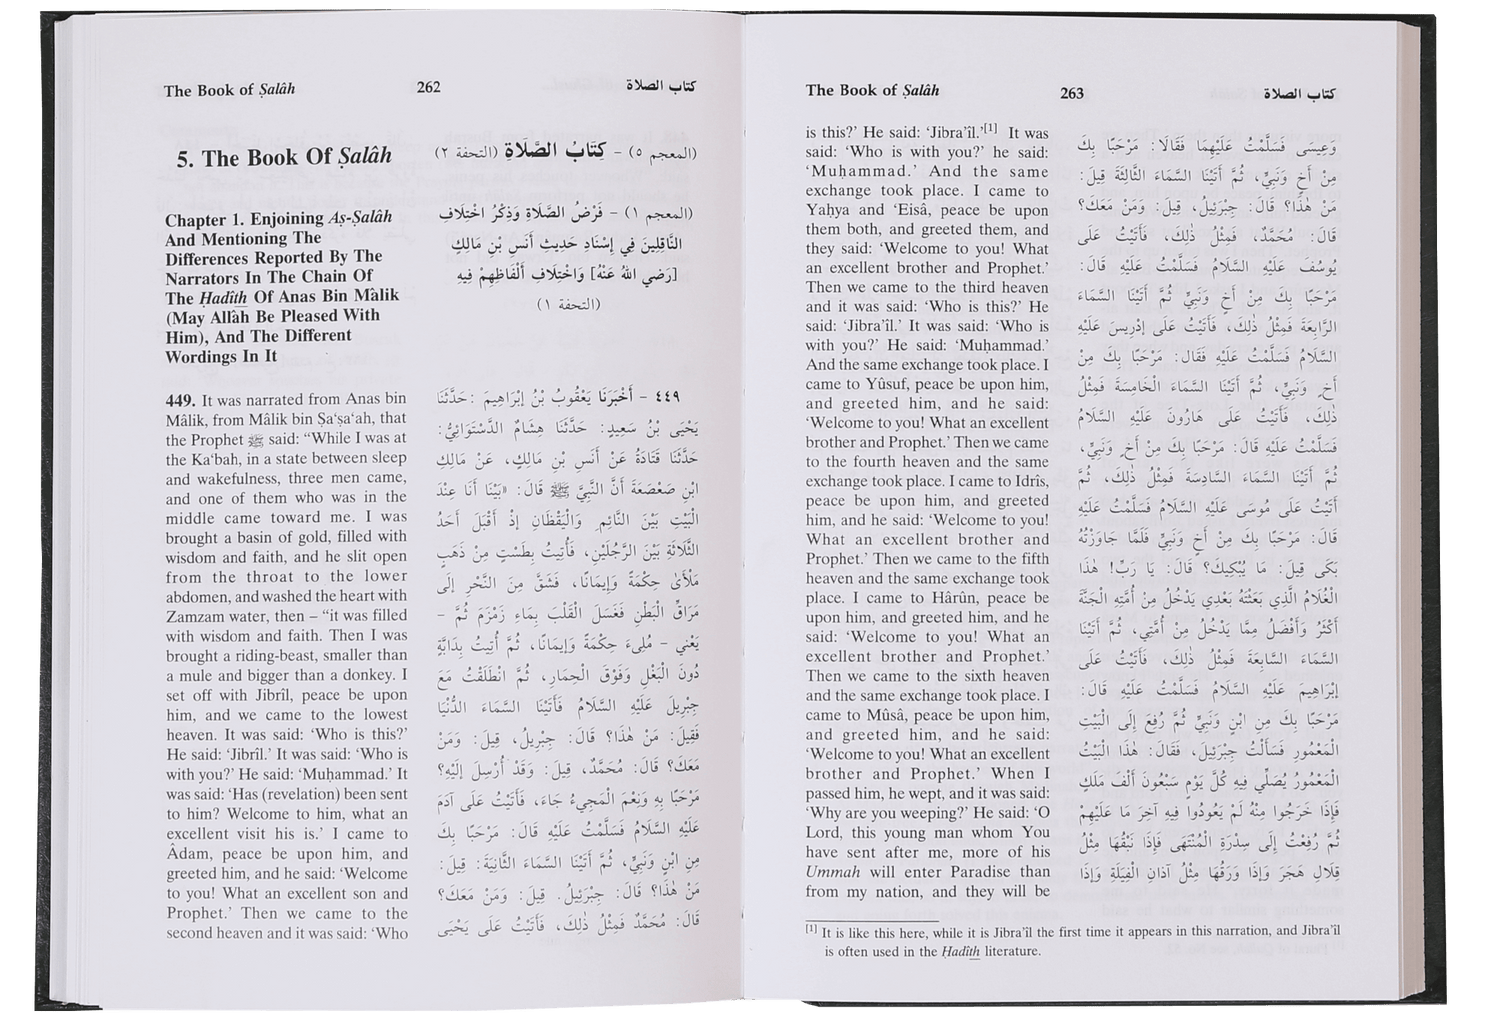 The Book of Ṣalâh 262 كتاب الصلاة
5. The Book Of Ṣalâh
Chapter 1. Enjoining Aṣ-Ṣalâh
And Mentioning The
Differences Reported By The
Narrators In The Chain Of
The Ḥadîth Of Anas Bin Mâlik
(May Allâh Be Pleased With
Him), And The Different
Wordings In It
449. It was narrated from Anas bin
Mâlik, from Mâlik bin Ṣa‘ṣa‘ah, that
the Prophet ﷺ said: “While I was at
the Ka‘bah, in a state between sleep
and wakefulness, three men came,
and one of them who was in the
middle came toward me. I was
brought a basin of gold, filled with
wisdom and faith, and he slit open
from the throat to the lower
abdomen, and washed the heart with
Zamzam water, then – “it was filled
with wisdom and faith. Then I was
brought a riding-beast, smaller than
a mule and bigger than a donkey. I
set off with Jibrîl, peace be upon
him, and we came to the lowest
heaven. It was said: ‘Who is this?’
He said: ‘Jibrîl.’ It was said: ‘Who is
with you?’ He said: ‘Muḥammad.’ It
was said: ‘Has (revelation) been sent
to him? Welcome to him, what an
excellent visit his is.’ I came to
Âdam, peace be upon him, and
greeted him, and he said: ‘Welcome
to you! What an excellent son and
Prophet.’ Then we came to the
second heaven and it was said: ‘Who
(المعجم ٥) – كِتَابُ الصَّلَاةِ (التحفة ٢)
(المعجم ١) – فَرْضُ الصَّلَاةِ وَذِكْرُ اخْتِلَافِ
النَّاقِلِينَ فِي إِسْنَادِ حَدِيثِ أَنَسِ بْنِ مَالِكٍ
[رَضِي اللهُ عَنْهُ] وَاخْتِلَافِ أَلْفَاظِهِمْ فِيهِ
(التحفة ١)
٤٤٩ – أَخْبَرَنَا يَعْقُوبُ بْنُ إِبْرَاهِيمَ: حَدَّثَنَا
يَحْيَى بْنُ سَعِيدٍ: حَدَّثَنَا هِشَامٌ الدَّسْتَوَائِيُّ:
حَدَّثَنَا قَتَادَةُ عَنْ أَنَسِ بْنِ مَالِكٍ، عَنْ مَالِكِ
ابْنِ صَعْصَعَةَ أَنَّ النَّبِيَّ ﷺ قَالَ: «بَيْنَا أَنَا عِنْدَ
الْبَيْتِ بَيْنَ النَّائِمِ وَالْيَقْظَانِ إِذْ أَقْبَلَ أَحَدُ
الثَّلَاثَةِ بَيْنَ الرَّجُلَيْنِ، فَأُتِيتُ بِطَسْتٍ مِنْ ذَهَبٍ
مَلْأَىٰ حِكْمَةً وَإِيمَانًا، فَشَقَّ مِنَ النَّحْرِ إِلَى
مَرَاقِّ الْبَطْنِ فَغَسَلَ الْقَلْبَ بِمَاءِ زَمْزَمَ ثُمَّ –
يَعْنِي – مُلِىءَ حِكْمَةً وَإِيمَانًا، ثُمَّ أُتِيتُ بِدَابَّةٍ
دُونَ الْبَغْلِ وَفَوْقَ الْحِمَارِ، ثُمَّ انْطَلَقْتُ مَعَ
جِبْرِيلَ عَلَيْهِ السَّلَامُ فَأَتَيْنَا السَّمَاءَ الدُّنْيَا
فَقِيلَ: مَنْ هٰذَا؟ قَالَ: جِبْرِيلُ، قِيلَ: وَمَنْ
مَعَكَ؟ قَالَ: مُحَمَّدٌ، قِيلَ: وَقَدْ أُرْسِلَ إِلَيْهِ؟
مَرْحَبًا بِهِ وَنِعْمَ الْمَجِيءُ جَاءَ، فَأَتَيْتُ عَلَى آدَمَ
عَلَيْهِ السَّلَامُ فَسَلَّمْتُ عَلَيْهِ قَالَ: مَرْحَبًا بِكَ
مِنِ ابْنٍ وَنَبِيٍّ، ثُمَّ أَتَيْنَا السَّمَاءَ الثَّانِيَةَ: قِيلَ:
مَنْ هٰذَا؟ قَالَ: جِبْرَئِيلُ. قِيلَ: وَمَنْ مَعَكَ؟
قَالَ: مُحَمَّدٌ فَمِثْلُ ذٰلِكَ، فَأَتَيْتُ عَلَى يَحْيَى
The Book of Ṣalâh 263 كتاب الصلاة
is this?’ He said: ‘Jibra’îl.’[1] It was
said: ‘Who is with you?’ he said:
‘Muḥammad.’ And the same
exchange took place. I came to
Yaḥya and ‘Eisâ, peace be upon
them both, and greeted them, and
they said: ‘Welcome to you! What
an excellent brother and Prophet.’
Then we came to the third heaven
and it was said: ‘Who is this?’ He
said: ‘Jibra’îl.’ It was said: ‘Who is
with you?’ He said: ‘Muḥammad.’
And the same exchange took place. I
came to Yûsuf, peace be upon him,
and greeted him, and he said:
‘Welcome to you! What an excellent
brother and Prophet.’ Then we came
to the fourth heaven and the same
exchange took place. I came to Idrîs,
peace be upon him, and greeted
him, and he said: ‘Welcome to you!
What an excellent brother and
Prophet.’ Then we came to the fifth
heaven and the same exchange took
place. I came to Hârûn, peace be
upon him, and greeted him, and he
said: ‘Welcome to you! What an
excellent brother and Prophet.’
Then we came to the sixth heaven
and the same exchange took place. I
came to Mûsâ, peace be upon him,
and greeted him, and he said:
‘Welcome to you! What an excellent
brother and Prophet.’ When I
passed him, he wept, and it was said:
‘Why are you weeping?’ He said: ‘O
Lord, this young man whom You
have sent after me, more of his
Ummah will enter Paradise than
from my nation, and they will be
وَعِيسَى فَسَلَّمْتُ عَلَيْهِمَا فَقَالَا: مَرْحَبًا بِكَ
مِنْ أَخٍ وَنَبِيٍّ، ثُمَّ أَتَيْنَا السَّمَاءَ الثَّالِثَةَ قِيلَ:
مَنْ هٰذَا؟ قَالَ: جِبْرَئِيلُ، قِيلَ: وَمَنْ مَعَكَ؟
قَالَ: مُحَمَّدٌ، فَمِثْلُ ذٰلِكَ، فَأَتَيْتُ عَلَى
يُوسُفَ عَلَيْهِ السَّلَامُ فَسَلَّمْتُ عَلَيْهِ قَالَ:
مَرْحَبًا بِكَ مِنْ أَخٍ وَنَبِيٍّ ثُمَّ أَتَيْنَا السَّمَاءَ
الرَّابِعَةَ فَمِثْلُ ذٰلِكَ، فَأَتَيْتُ عَلَى إِدْرِيسَ عَلَيْهِ
السَّلَامُ فَسَلَّمْتُ عَلَيْهِ فَقَال: مَرْحَبًا بِكَ مِنْ
أَخٍ وَنَبِيٍّ، ثُمَّ أَتَيْنَا السَّمَاءَ الْخَامِسَةَ فَمِثْلُ
ذٰلِكَ، فَأَتَيْتُ عَلَى هَارُونَ عَلَيْهِ السَّلَامُ
فَسَلَّمْتُ عَلَيْهِ قَالَ: مَرْحَبًا بِكَ مِنْ أَخٍ وَنَبِيٍّ،
ثُمَّ أَتَيْنَا السَّمَاءَ السَّادِسَةَ فَمِثْلُ ذٰلِكَ، ثُمَّ
أَتَيْتُ عَلَى مُوسَى عَلَيْهِ السَّلَامُ فَسَلَّمْتُ عَلَيْهِ
قَالَ: مَرْحَبًا بِكَ مِنْ أَخٍ وَنَبِيٍّ فَلَمَّا جَاوَزْتُهُ
بَكَى قِيلَ: مَا يُبْكِيكَ؟ قَالَ: يَا رَبِّ! هٰذَا
الْغُلَامُ الَّذِي بَعَثْتَهُ بَعْدِي يَدْخُلُ مِنْ أُمَّتِهِ الْجَنَّةَ
أَكْثَرُ وَأَفْضَلُ مِمَّا يَدْخُلُ مِنْ أُمَّتِي، ثُمَّ أَتَيْنَا
السَّمَاءَ السَّابِعَةَ فَمِثْلُ ذٰلِكَ، فَأَتَيْتُ عَلَى
إِبْرَاهِيمَ عَلَيْهِ السَّلَامُ فَسَلَّمْتُ عَلَيْهِ قَالَ:
مَرْحَبًا بِكَ مِنِ ابْنٍ وَنَبِيٍّ ثُمَّ رُفِعَ إِلَى الْبَيْتِ
الْمَعْمُورِ فَسَأَلْتُ جِبْرَئِيلَ، فَقَالَ: هٰذَا الْبَيْتُ
الْمَعْمُورُ يُصَلِّي فِيهِ كُلَّ يَوْمٍ سَبْعُونَ أَلْفَ مَلَكٍ
فَإِذَا خَرَجُوا مِنْهُ لَمْ يَعُودُوا فِيهِ آخِرَ مَا عَلَيْهِمْ
ثُمَّ رُفِعْتُ إِلَى سِدْرَةِ الْمُنْتَهَى فَإِذَا نَبْقُهَا مِثْلُ
قِلَالِ هَجَرَ وَإِذَا وَرَقُهَا مِثْلُ آذَانِ الْفِيَلَةِ وَإِذَا
[1] It is like this here, while it is Jibra’îl the first time it appears in this narration, and Jibra’îl
is often used in the Ḥadîth literature.